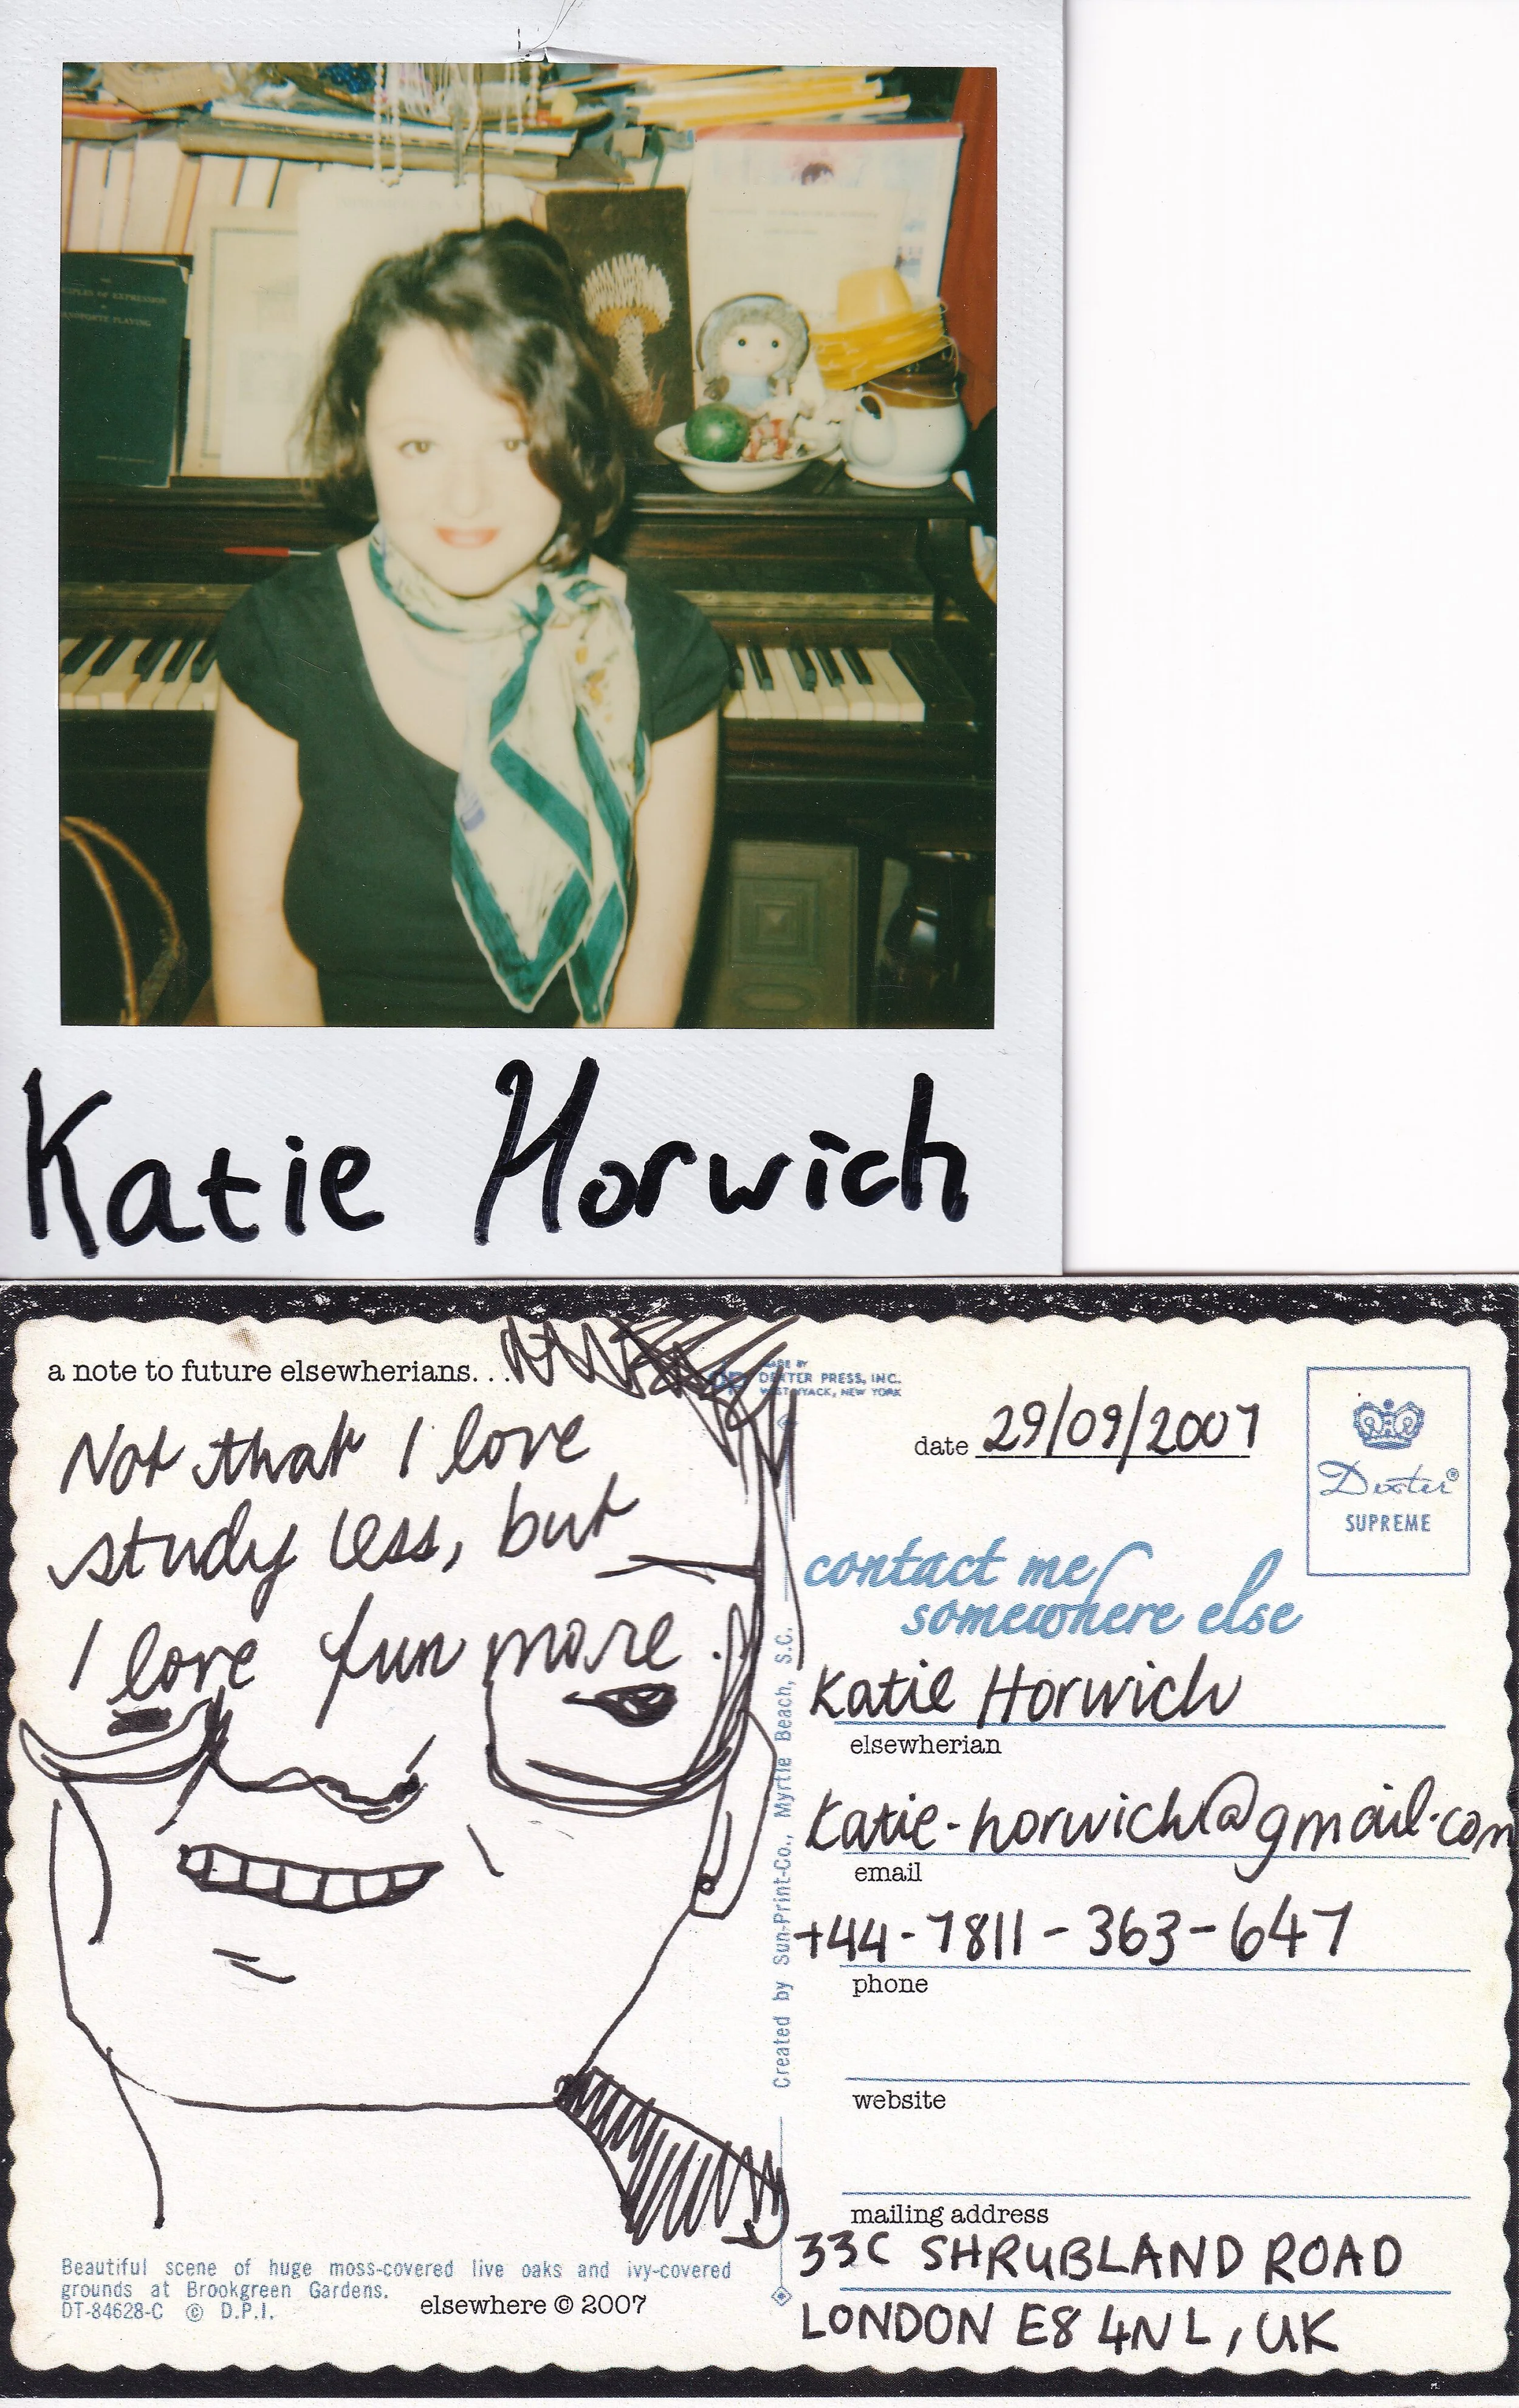 PRINCIPLES OF EXPRESSION
PIANOFORTE PLAYING
Katie Horwich
a note to future elsewherians. . .
Not that I love
study less, but
I love fun more.
MADE BY
DEXTER PRESS, INC.
WEST NYACK, NEW YORK
date 29/09/2007
Dexter®
SUPREME
contact me
somewhere else
Katie Horwich
elsewherian
katie-horwich@gmail.com
email
+44-7811-363-647
phone
website
mailing address
33C SHRUBLAND ROAD
LONDON E8 4NL, UK
Created by Sun-Print-Co., Myrtle Beach, S.C.
Beautiful scene of huge moss-covered live oaks and ivy-covered
grounds at Brookgreen Gardens.
DT-84628-C © D.P.I.
elsewhere © 2007